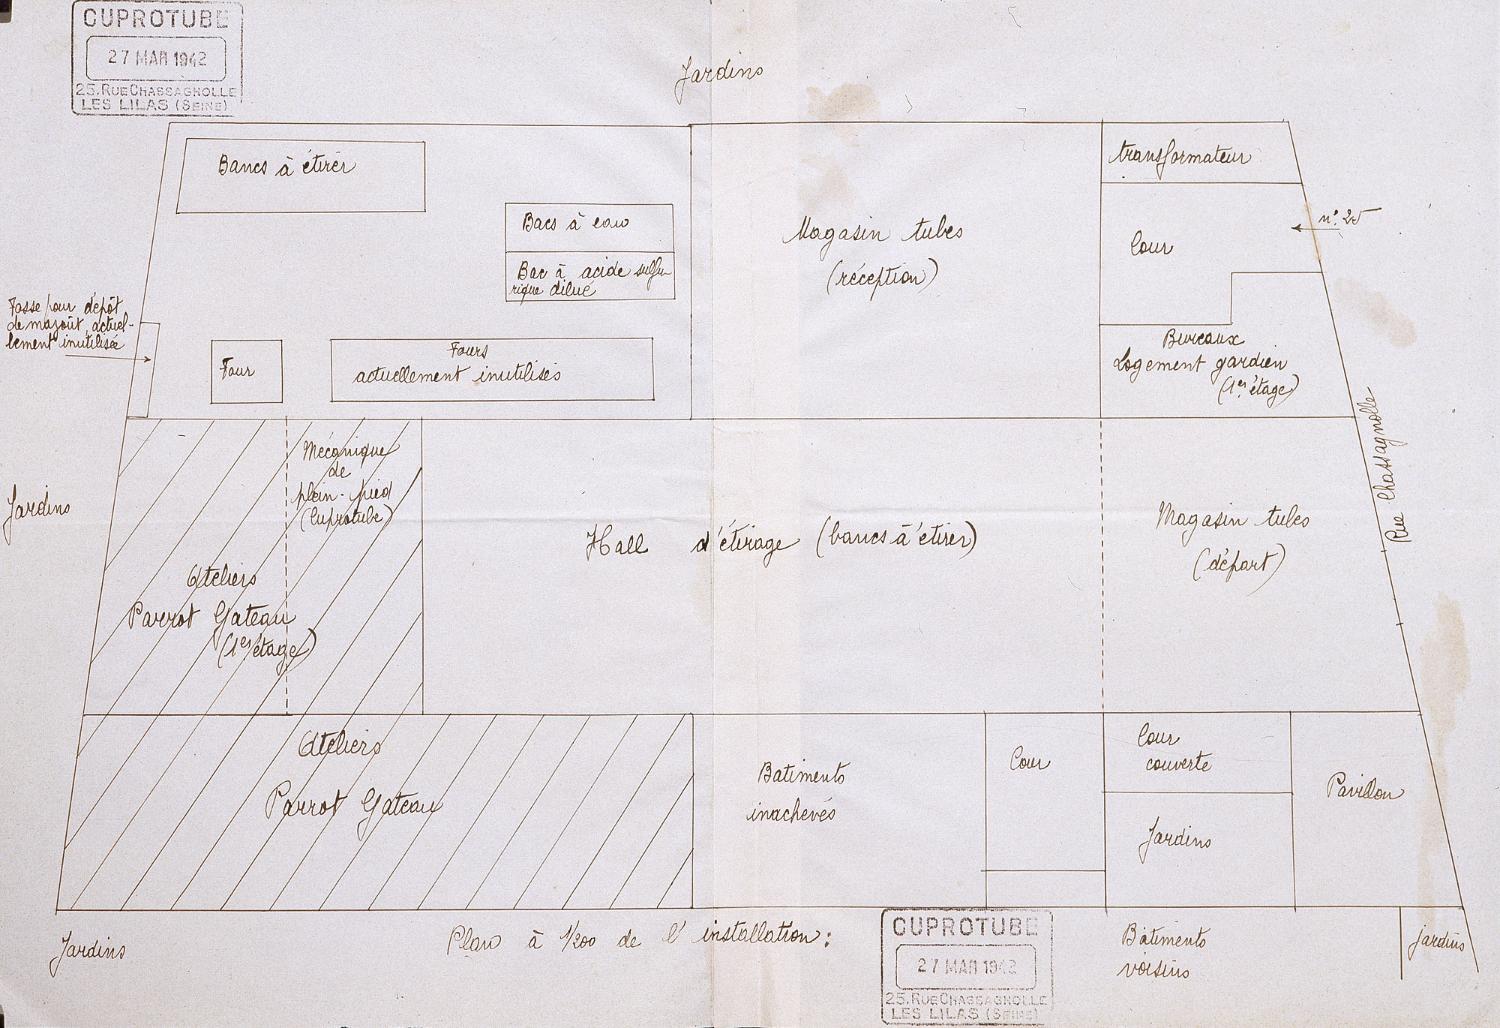 CUPROTUBE
27 MAR 1942
25. RUE CHASSAGNOLLE
LES LILAS (SEINE)
Jardins
Bancs à étirer
Bacs à eau
Bac à acide sulfu
rique dilué
Magasin tubes
(réception)
transformateur
Cour
n° 25
Fosse pour dépôt
de mazout, actuel-
lement inutilisée
Four
Fours
actuellement inutilisés
Bureaux
Logement gardien
(1er étage)
Rue Chassagnolle
Jardins
Mécanique
de
plain-pied
(Cuprotube)
Ateliers
Parrot Gateau
(1er étage)
Hall d'étirage (bancs à étirer)
Magasin tubes
(départ)
Ateliers
Parrot Gateau
Batiments
inachevés
Cour
Cour
couverte
Jardins
Pavillon
Jardins
Plan à 1/200 de l'installation:
CUPROTUBE
27 MAR 1942
25. RUE CHASSAGNOLLE
LES LILAS (SEINE)
Bâtiments
voisins
jardins